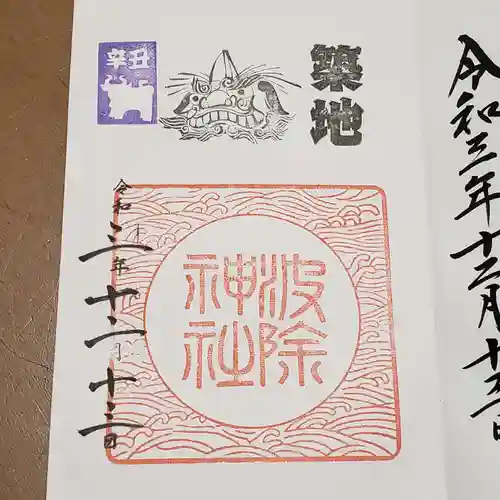 令和三年十二月十三日
築地
辛丑
波除
神社
令和三年十二月十三日